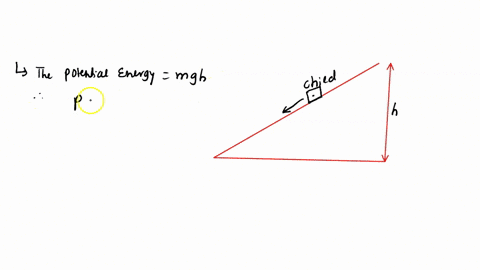 ↳ The Potential Energy = mgh
∴ P.
chied
h